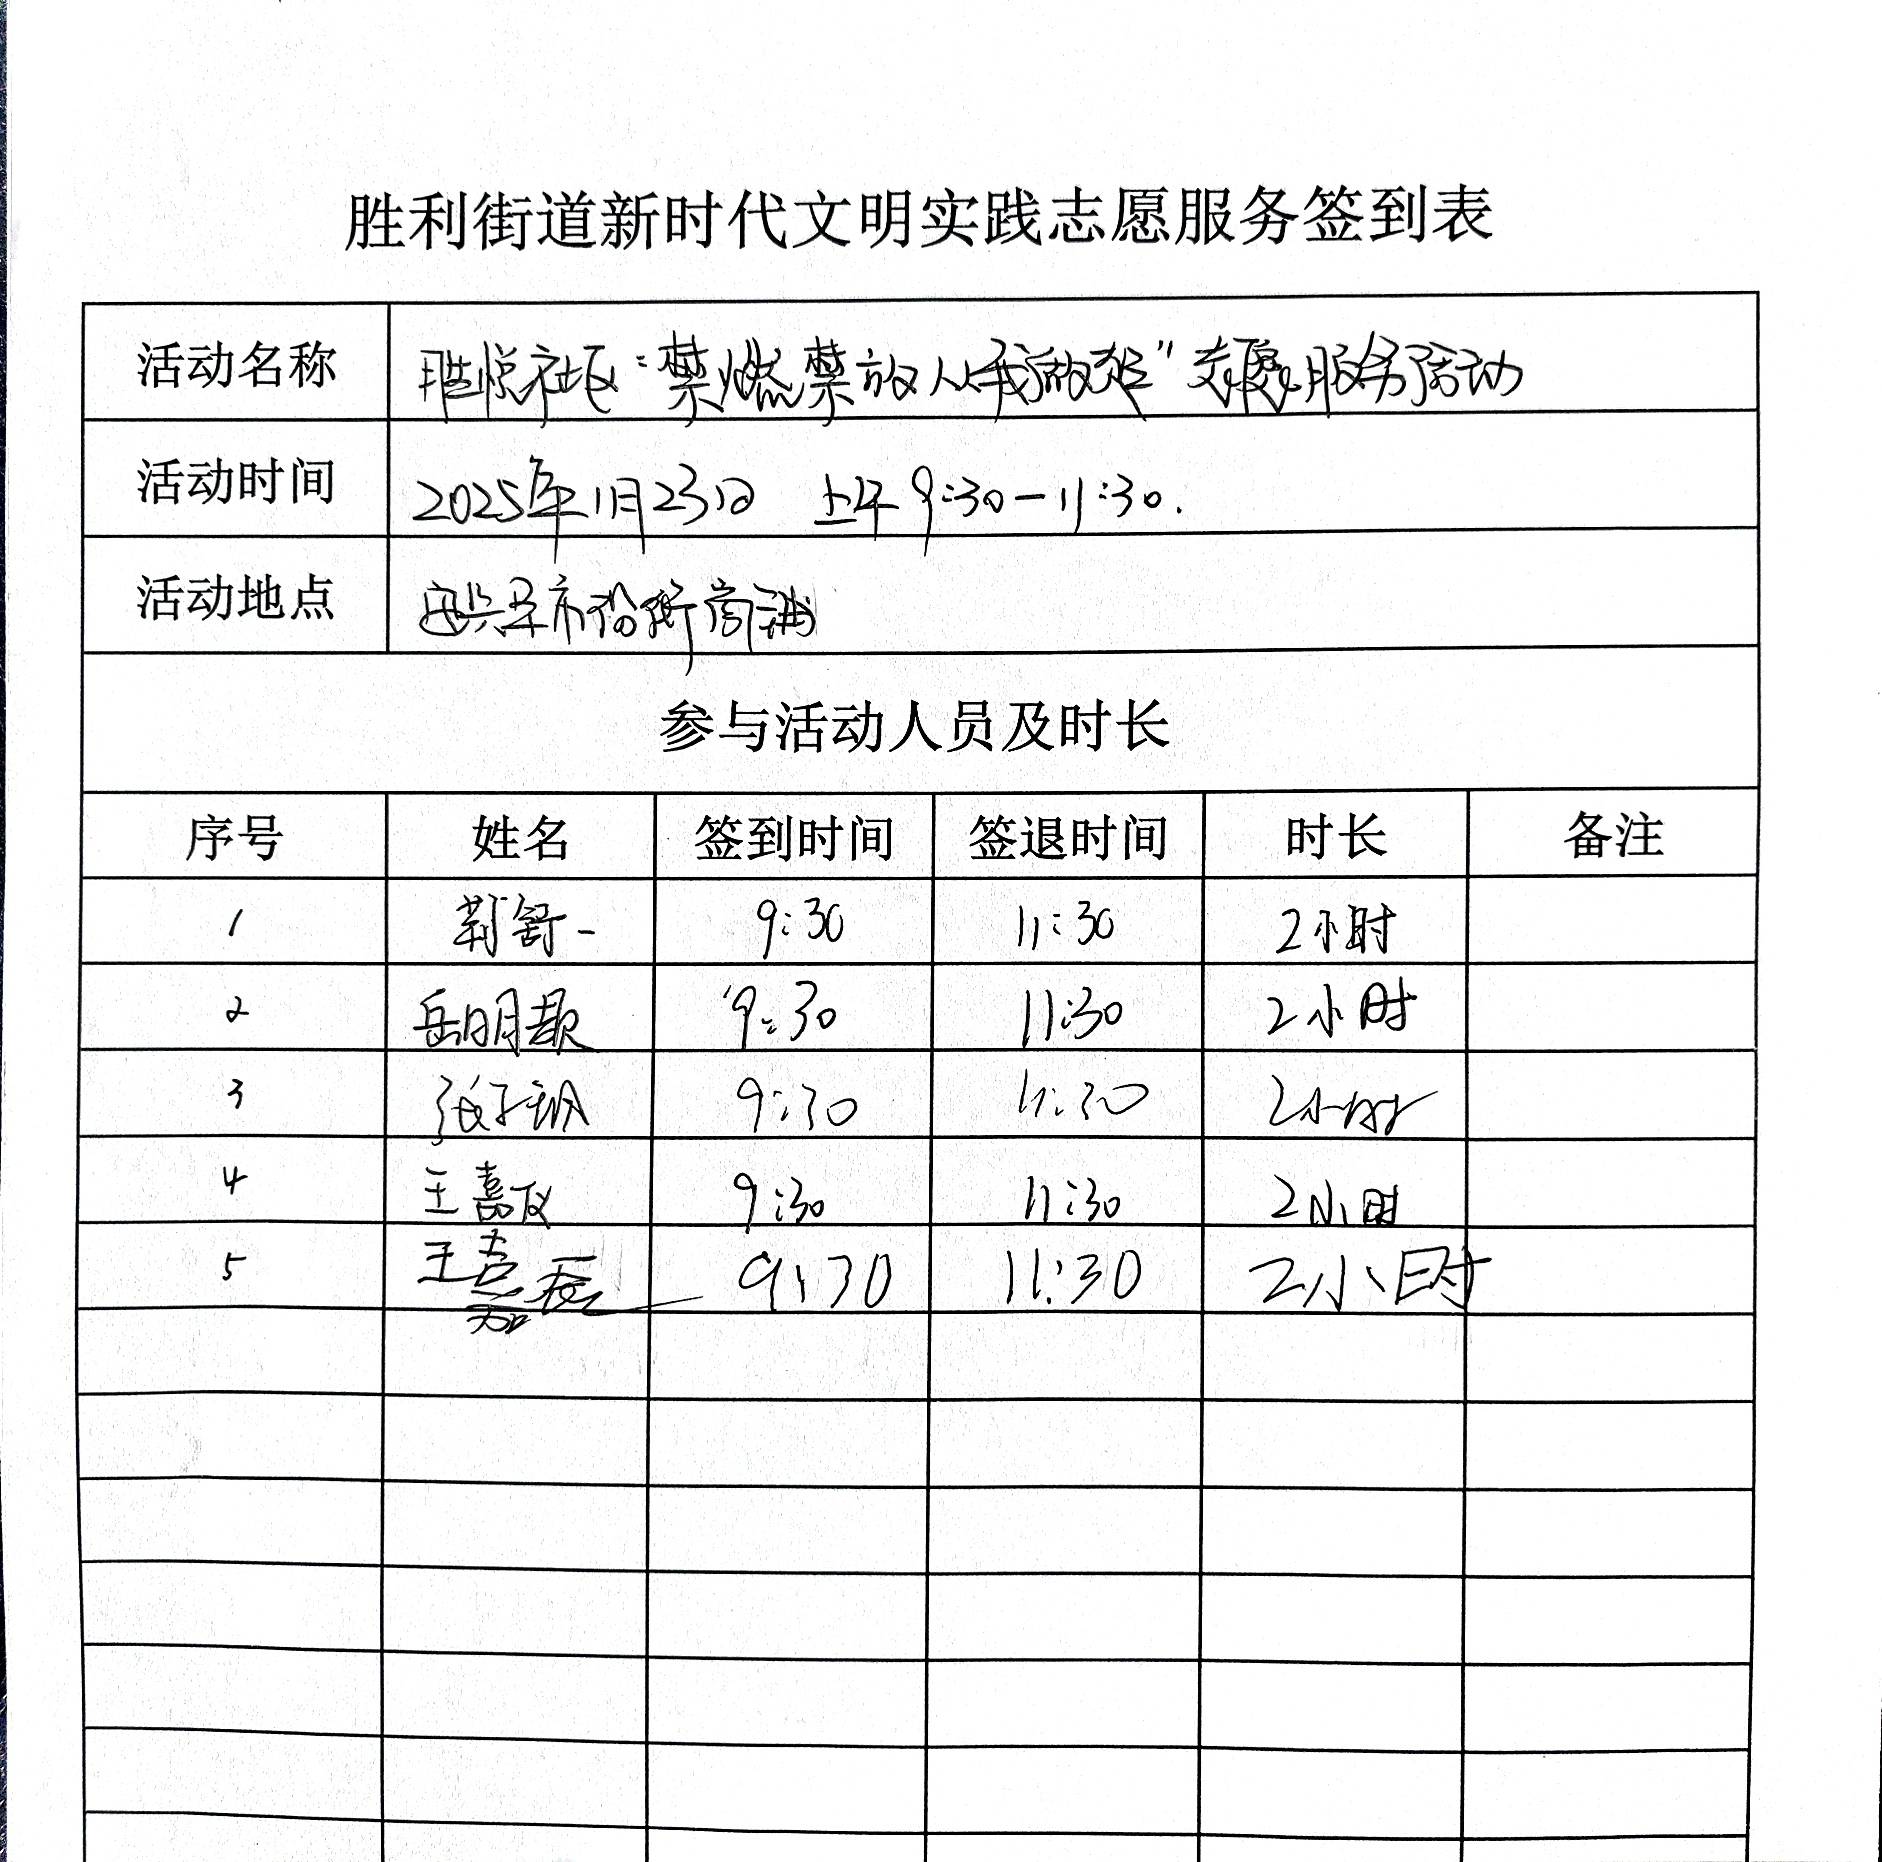 胜利街道新时代文明实践志愿服务签到表
活动名称 胜悦社区“禁燃禁放从我做起”志愿服务活动
活动时间 2025年1月23日 上午9:30-11:30.
活动地点 商铺
参与活动人员及时长
序号 姓名 签到时间 签退时间 时长 备注
1 荆舒一 9:30 11:30 2小时
2 岳明 9:30 11:30 2小时
3 张子玥 9:30 11:30 2小时
4 王嘉仪 9:30 11:30 2小时
5 王嘉 9:30 11:30 2小时